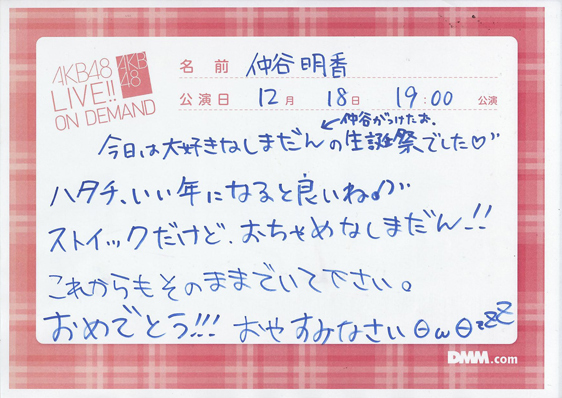 AKB48
LIVE!!
ON DEMAND
AKB
48
名前 仲谷明香
公演日 12月 18日 19:00 公演
仲谷がつけたお。
今日は大好きなしまだんの生誕祭でした♡
ハタチ、いい年になると良いね♪
ストイックだけど、おちゃめなしまだん!!
これからもそのままでいて下さい。
おめでとう!!! おやすみなさいΘωΘzzZZ
DMM.com